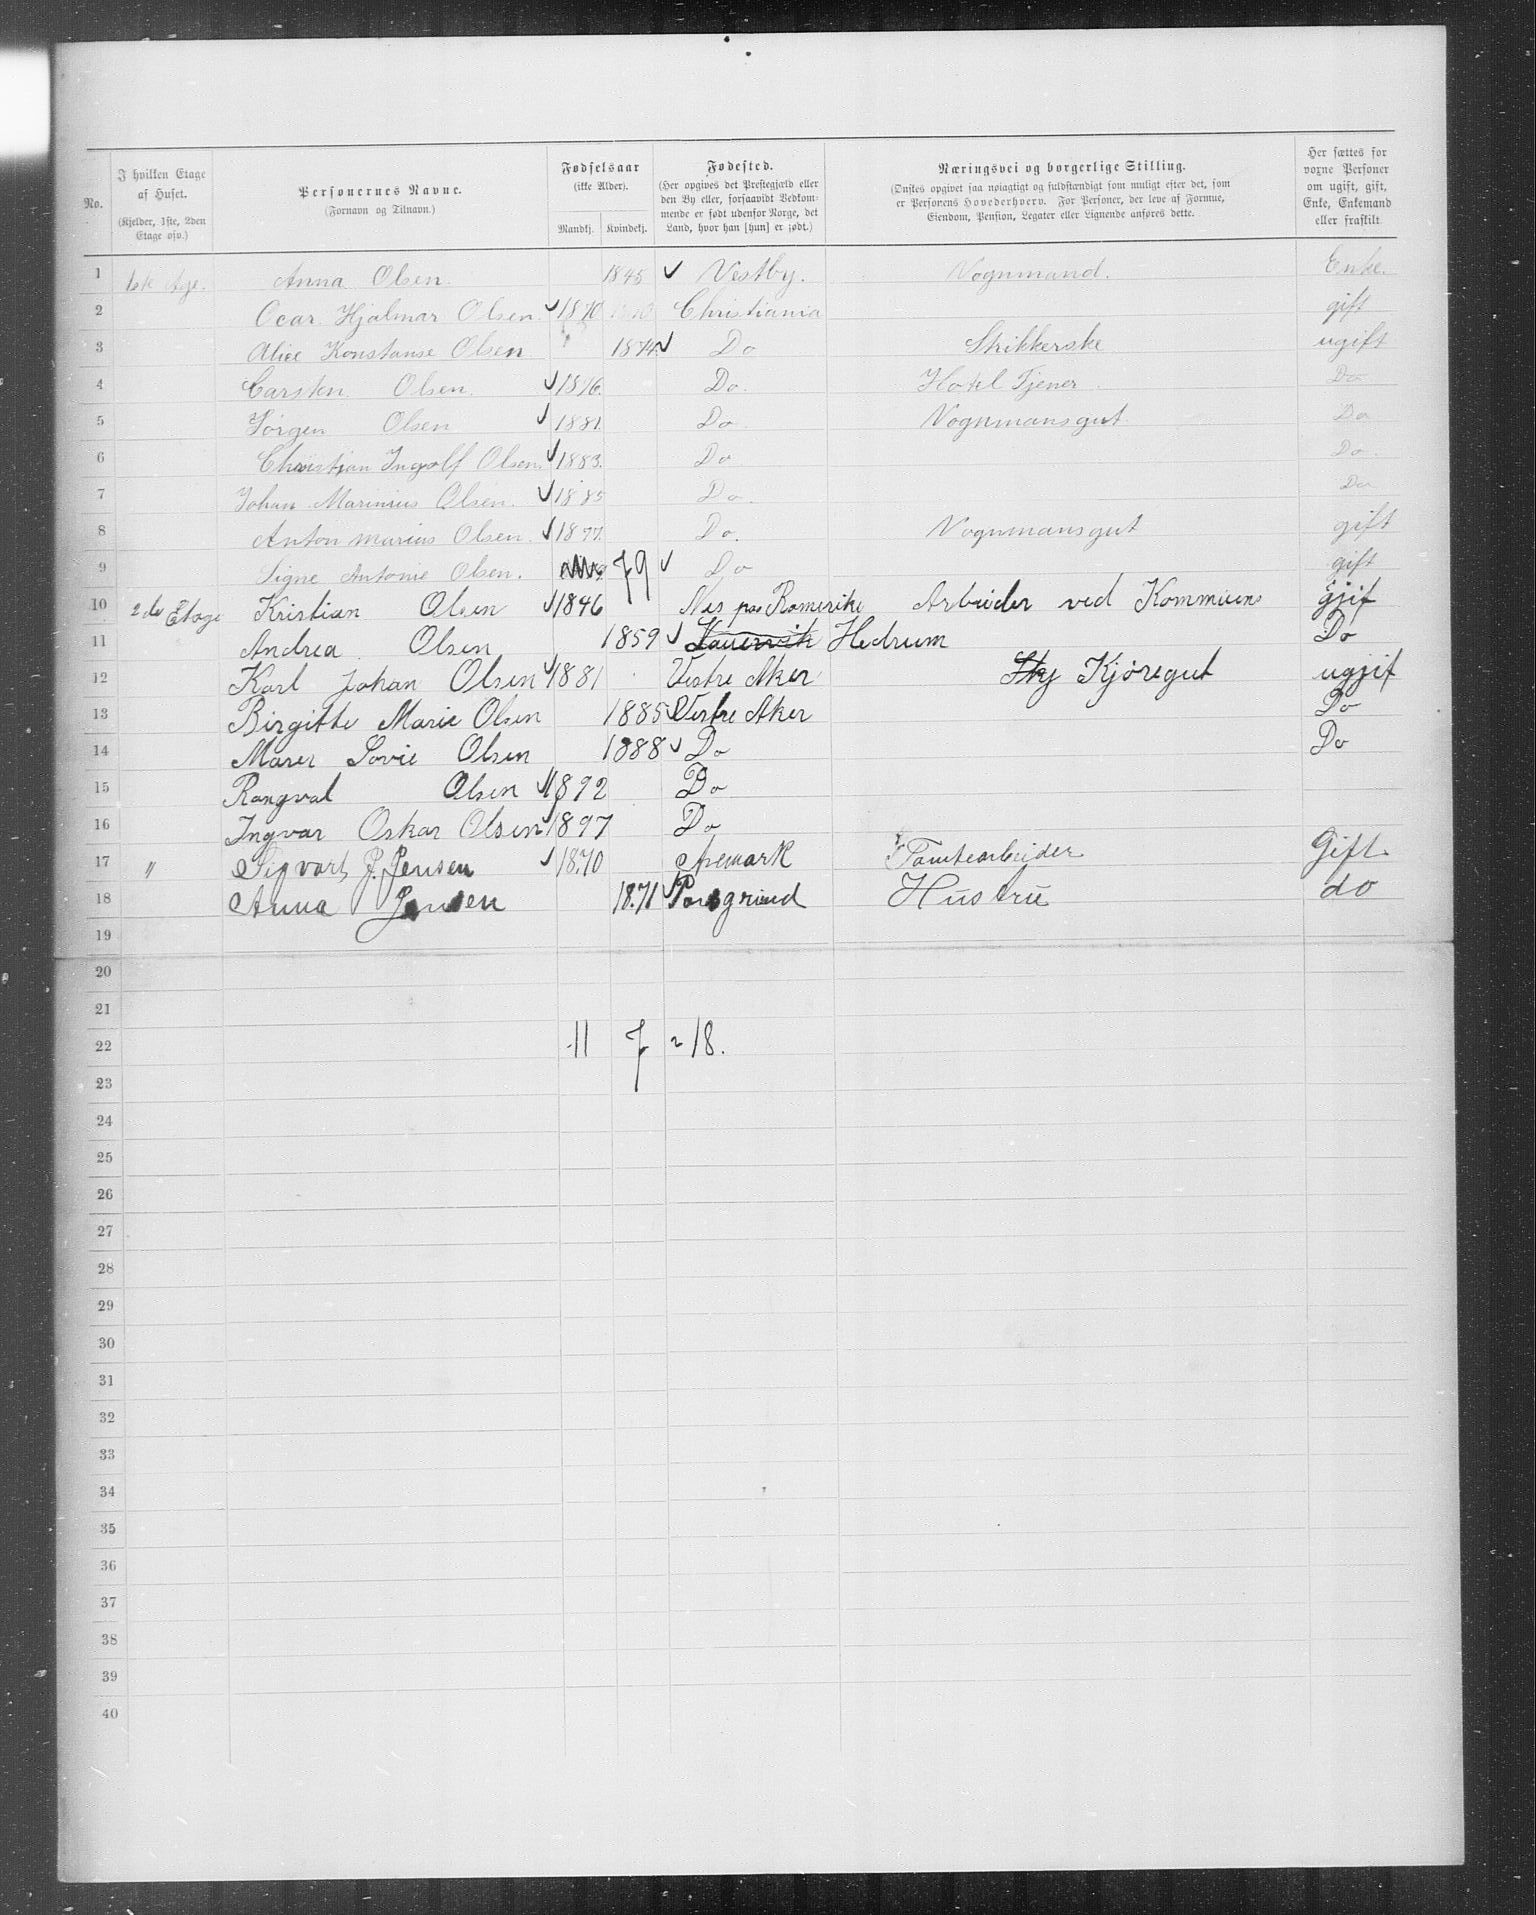 No.
I hvilken Etage af Huset.
(Kjelder, 1ste, 2den Etage osv.)
Personernes Navne.
(Fornavn og Tilnavn.)
Fødselsaar
(ikke Alder).
Mandkj. Kvindekj.
Fødested.
(Her opgives det Prestegjæld eller den By eller, forsaavidt Vedkommende er født udenfor Norge, det Land, hvor han [hun] er født.)
Næringsvei og borgerlige Stilling.
(Ønskes opgivet saa nøiagtigt og fuldstændigt som muligt efter det, som er Personens Hovederhverv. For Personer, der leve af Formue, Eiendom, Pension, Legater eller Lignende anføres dette.
Her sættes for voxne Personer om ugift, gift, Enke, Enkemand eller fraskilt
1 1ste Anna Olsen. 1845 ✓ Vestby. Vognmand. Enke.
2 Ocar Hjalmar Olsen ✓ 1870 Christiania gift
3 Alice Konstanse Olsen 1874 ✓ Do Strikkerske ugift
4 Carsten Olsen. ✓ 1876. Do. Hotel Tjener. Do
5 Jørgen Olsen ✓ 1881 Do. Vognmansgut Do
6 Christian Ingolf Olsen. ✓ 1883. Do Do.
7 Johan Marinius Olsen. ✓ 1885 Do. Do
8 Anton Marius Olsen. ✓ 1877. Do. Vognmansgut gift
9 Signe Antonie Olsen. 79 ✓ Do gift
10 2de Etage Kristian Olsen ✓ 1846 Nes paa Romerike Arbeider ved Kommunen gjift
11 Andrea Olsen 1859 ✓ Hedrum Do
12 Karl Johan Olsen ✓ 1881 Vestre Aker Kjøregut ugjift
13 Birgitte Marie Olsen 1885 ✓ Vestre Aker Do
14 Maren Lovie Olsen 1888 ✓ Do Do
15 Rangval Olsen ✓ 1892 Do
16 Ingvar Oskar Olsen ✓ 1897 Do
17 " Sigvart J. Jensen ✓ 1870 Aremark Tomtearbeider Gift.
18 Anna Jensen 1871 ✓ Porsgrund Hustru do
19
20
21
22 11 7 = 18.
23
24
25
26
27
28
29
30
31
32
33
34
35
36
37
38
39
40